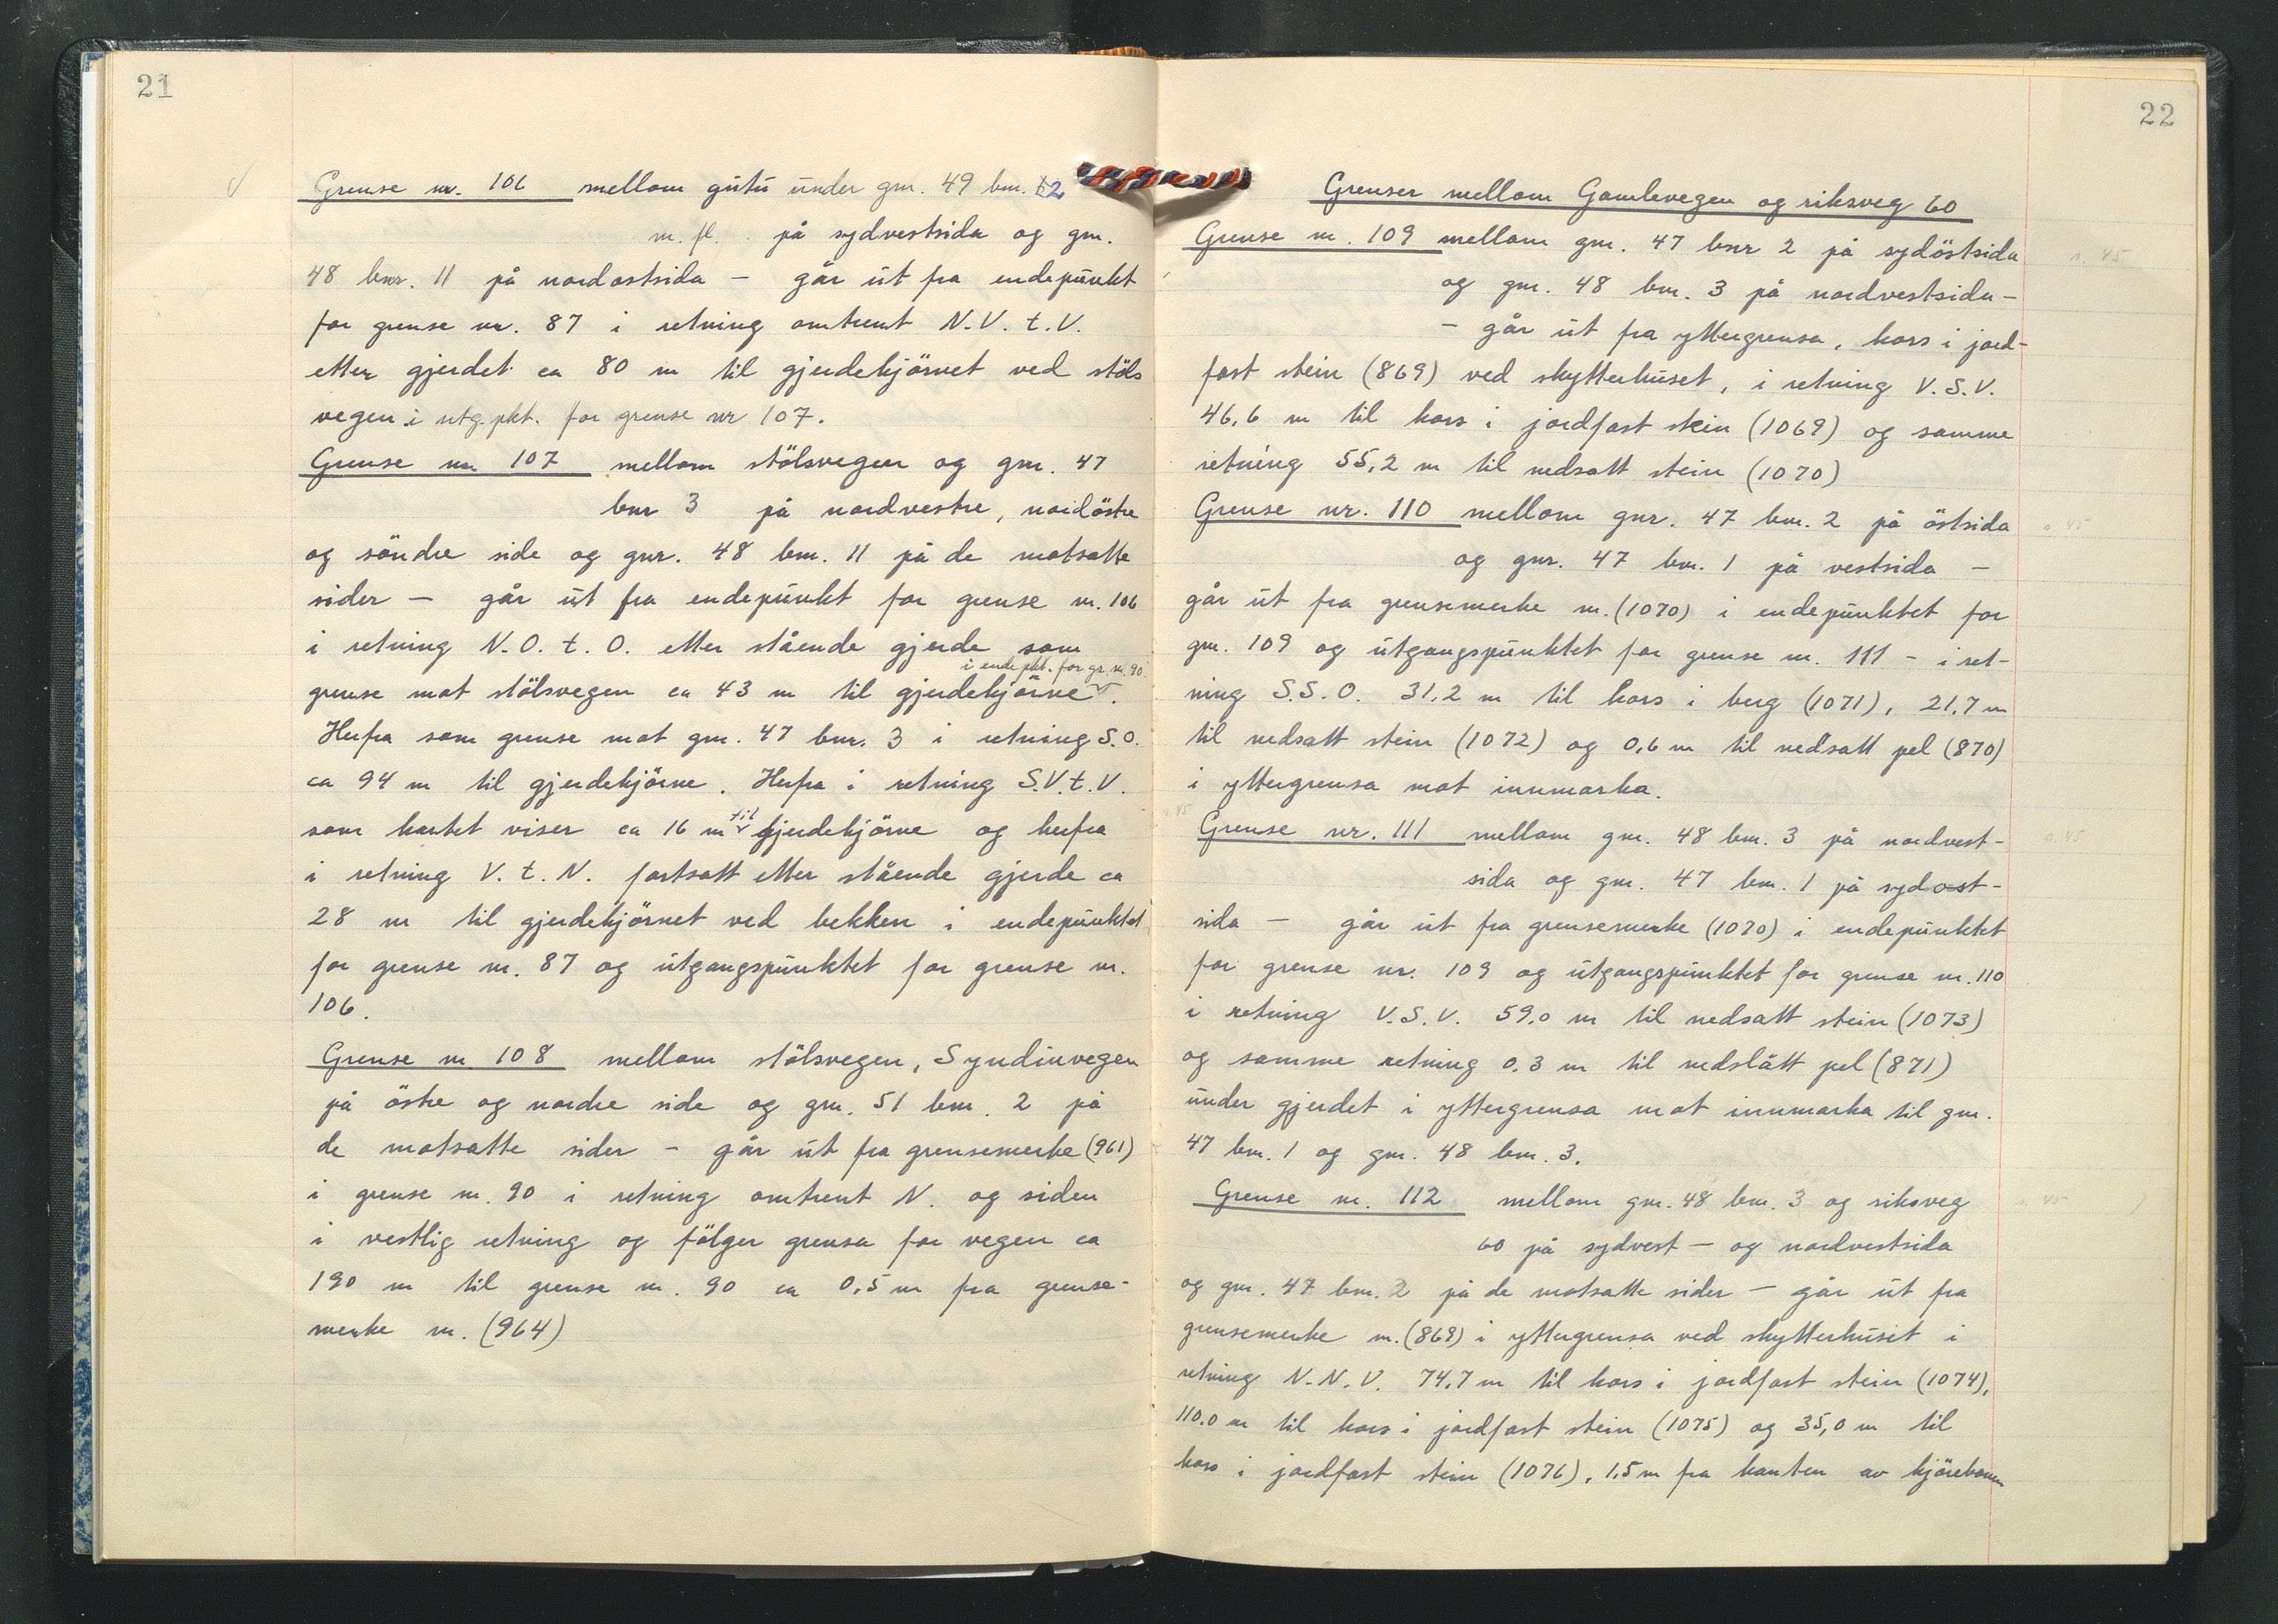 21
Grense nr. 106 mellom gutu under gnr. 49 bnr. 2
m. fl. på sydvestsida og gnr.
48 bnr. 11 på nordostsida — går ut fra endepunkt
for grense nr. 87 i retning omtrent N.V. t. V.
etter gjerdet ca 80 m til gjerdehjörnet ved stöls
vegen i utg.pkt. for grense nr 107.
Grense nr 107 mellom stölsvegen og gnr. 47
bnr 3 på nordvestre, nordöstre
og söndre side og gnr. 48 bnr. 11 på de motsatte
sider — går ut fra endepunkt for grense nr. 106
i retning N.O. t. O. etter stående gjerde som
i ende pkt. for gr. nr. 90
grense mot stölsvegen ca 43 m til gjerdehjörne.
Herfra som grense mot gnr. 47 bnr. 3 i retning S.O.
ca 94 m til gjerdehjörne. Herfra i retning S.V.t.V.
som kartet viser ca 16 m til gjerdehjörne og herfra
i retning V. t. N. fortsatt etter stående gjerde ca
28 m til gjerdehjörnet ved bekken i endepunktet
for grense nr. 87 og utgangspunktet for grense nr.
106.
Grense nr 108 mellom stölsvegen, Syndinvegen
på östre og nordre side og gnr. 51 bnr. 2 på
de motsatte sider — går ut fra grensemerke (961)
i grense nr. 90 i retning omtrent N. og siden
i vestlig retning og fölger grensa for vegen ca
190 m til grense nr. 90 ca 0,5 m fra grense-
merke nr. (964)
22
Grenser mellom Gamlevegen og riksveg 60
Grense nr. 109 mellom gnr. 47 bnr 2 på sydöstsida
og gnr. 48 bnr. 3 på nordvestsida —
— går ut fra yttergrensa, kors i jord-
fast stein (869) ved skytterhuset, i retning V.S.V.
46,6 m til kors i jordfast stein (1069) og samme
retning 55,2 m til nedsatt stein (1070)
Grense nr. 110 mellom gnr. 47 bnr. 2 på östsida
og gnr. 47 bnr. 1 på vestsida —
går ut fra grensemerke nr. (1070) i endepunktet for
gnr. 109 og utgangspunktet for grense nr. 111 — i ret-
ning S.S.O. 31,2 m til kors i berg (1071), 21,7 m
til nedsatt stein (1072) og 0,6 m til nedsatt pel (870)
i yttergrensa mot innmarka.
Grense nr. 111 mellom gnr. 48 bnr. 3 på nordvest-
sida og gnr. 47 bnr. 1 på sydost-
sida — går ut fra grensemerke (1070) i endepunktet
for grense nr. 109 og utgangspunktet for grense nr. 110
i retning V.S.V. 59,0 m til nedsatt stein (1073)
og samme retning 0,3 m til nedslått pel (871)
under gjerdet i yttergrensa mot innmarka til gnr.
47 bnr. 1 og gnr. 48 bnr. 3.
Grense nr. 112 mellom gnr. 48 bnr. 3 og riksveg
60 på sydvest — og nordvestsida
og gnr. 47 bnr. 2 på de motsatte sider — går ut fra
grensemerke nr. (869) i yttergrensa ved skytterhuset i
retning N.N.V. 74,7 m til kors i jordfast stein (1074),
110,0 m til kors i jordfast stein (1075) og 35,0 m til
kors i jordfast stein (1076), 1,5 m fra kanten av kjörebanen